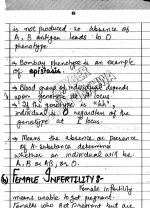 is not produced so absence of
A, B antigen leads to O
phenotype.
→ Bombay phenotype is an example
of epistasis.
→ Blood group of individual depends
upon genotype at locus.
→ If the genotype is "hh",
individual is O regardless of the
genotype at locus
→ Means the absence or presence
of H-substance determine
whether an individual will be
A, B or AB, or O.
FEMALE INFERTILITY :-
Female infertility
means unable to get pregnant.
Females who get pregnant but are